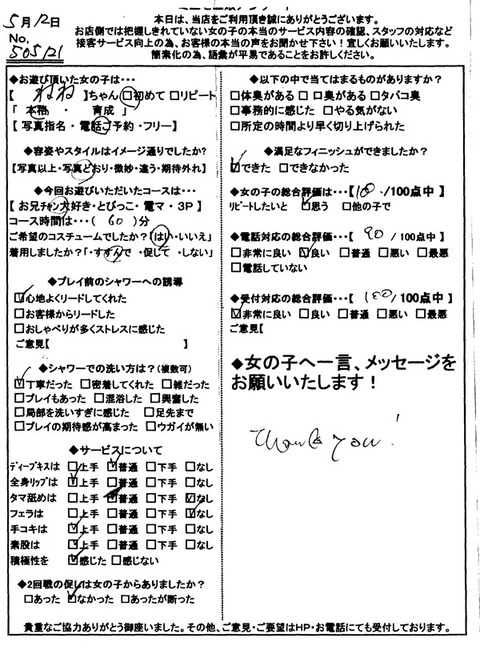 5月12日
本日は、当店をご利用頂き誠にありがとうございます。
No.
お店側では把握しきれていない女の子の本当のサービス内容の確認、スタッフの対応など
接客サービス向上の為、お客様の本当の声をお聞かせ下さい！宜しくお願いいたします。
簡素化の為、語彙が平易であることをお許しください。
◆お遊び頂いた女の子は・・・
【 ねね 】ちゃん□初めて □リピート
「 本指 ・ 育成 」
【 写真指名・電話ご予約・フリー】
◆容姿やスタイルはイメージ通りでしたか?
【写真以上・写真どおり・微妙・違う・期待外れ】
◆今回お遊びいただいたコースは・・・
【 お兄チャン大好き・とびっこ・電マ・3P 】
コース時間は・・・( 60 )分
ご希望のコスチュームでしたか?「はい・いいえ」
着用しましたか?「・すすんで ・促して ・しない」
◆プレイ前のシャワーへの誘導
□心地よくリードしてくれた
□お客様からリードした
□おしゃべりが多くストレスに感じた
ご意見【 】
◆シャワーでの洗い方は?(複数可)
□丁寧だった □密着してくれた □雑だった
□プレイもあった □混浴した □興奮した
□局部を洗いすぎに感じた □足先まで
□プレイの期待感が高まった □ウガイが無い
◆サービスについて
ディープキスは □上手 □普通 □下手 □なし
全身リップは □上手 □普通 □下手 □なし
タマ舐めは □上手 □普通 □下手 □なし
フェラは □上手 □普通 □下手 □なし
手コキは □上手 □普通 □下手 □なし
素股は □上手 □普通 □下手 □なし
積極性を □感じた □感じない
◆2回戦の促しは女の子からありましたか?
□あった □なかった □あったが断った
◆以下の中で当てはまるものがありますか?
□体臭がある □口臭がある □タバコ臭
□事務的に感じた □やる気がない
□所定の時間より早く切り上げられた
◆満足なフィニッシュができましたか?
□できた □できなかった
◆女の子の総合評価は・・・【 100 /100点中】
リピートしたいと □思う □他の子で
◆電話対応の総合評価・・・【 90 /100点中】
□非常に良い □良い □普通 □悪い □最悪
□電話していない
◆受付対応の総合評価・・・【 100 /100点中】
□非常に良い □良い □普通 □悪い □最悪
ご意見【
◆女の子へ一言、メッセージを
お願いいたします！
Thank you!
貴重なご協力ありがとう御座いました。その他、ご意見・ご要望はHP・お電話にても受付しております。